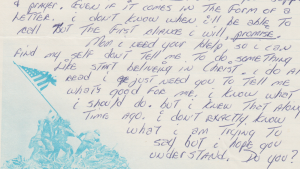 & prayer. Even if it comes in the form of a
letter. i don't know when i'll be able to
call but the first chance i will, promise.
Mom i need your help so i can
find my self don't tell me to do something
like start believing in Christ. i do an
read i just need you to tell me
what's good for me, i know what
i should do. but i knew that along
time ago. i don't exactly know
what i am trying to
say but i hope you
understand. Do you?